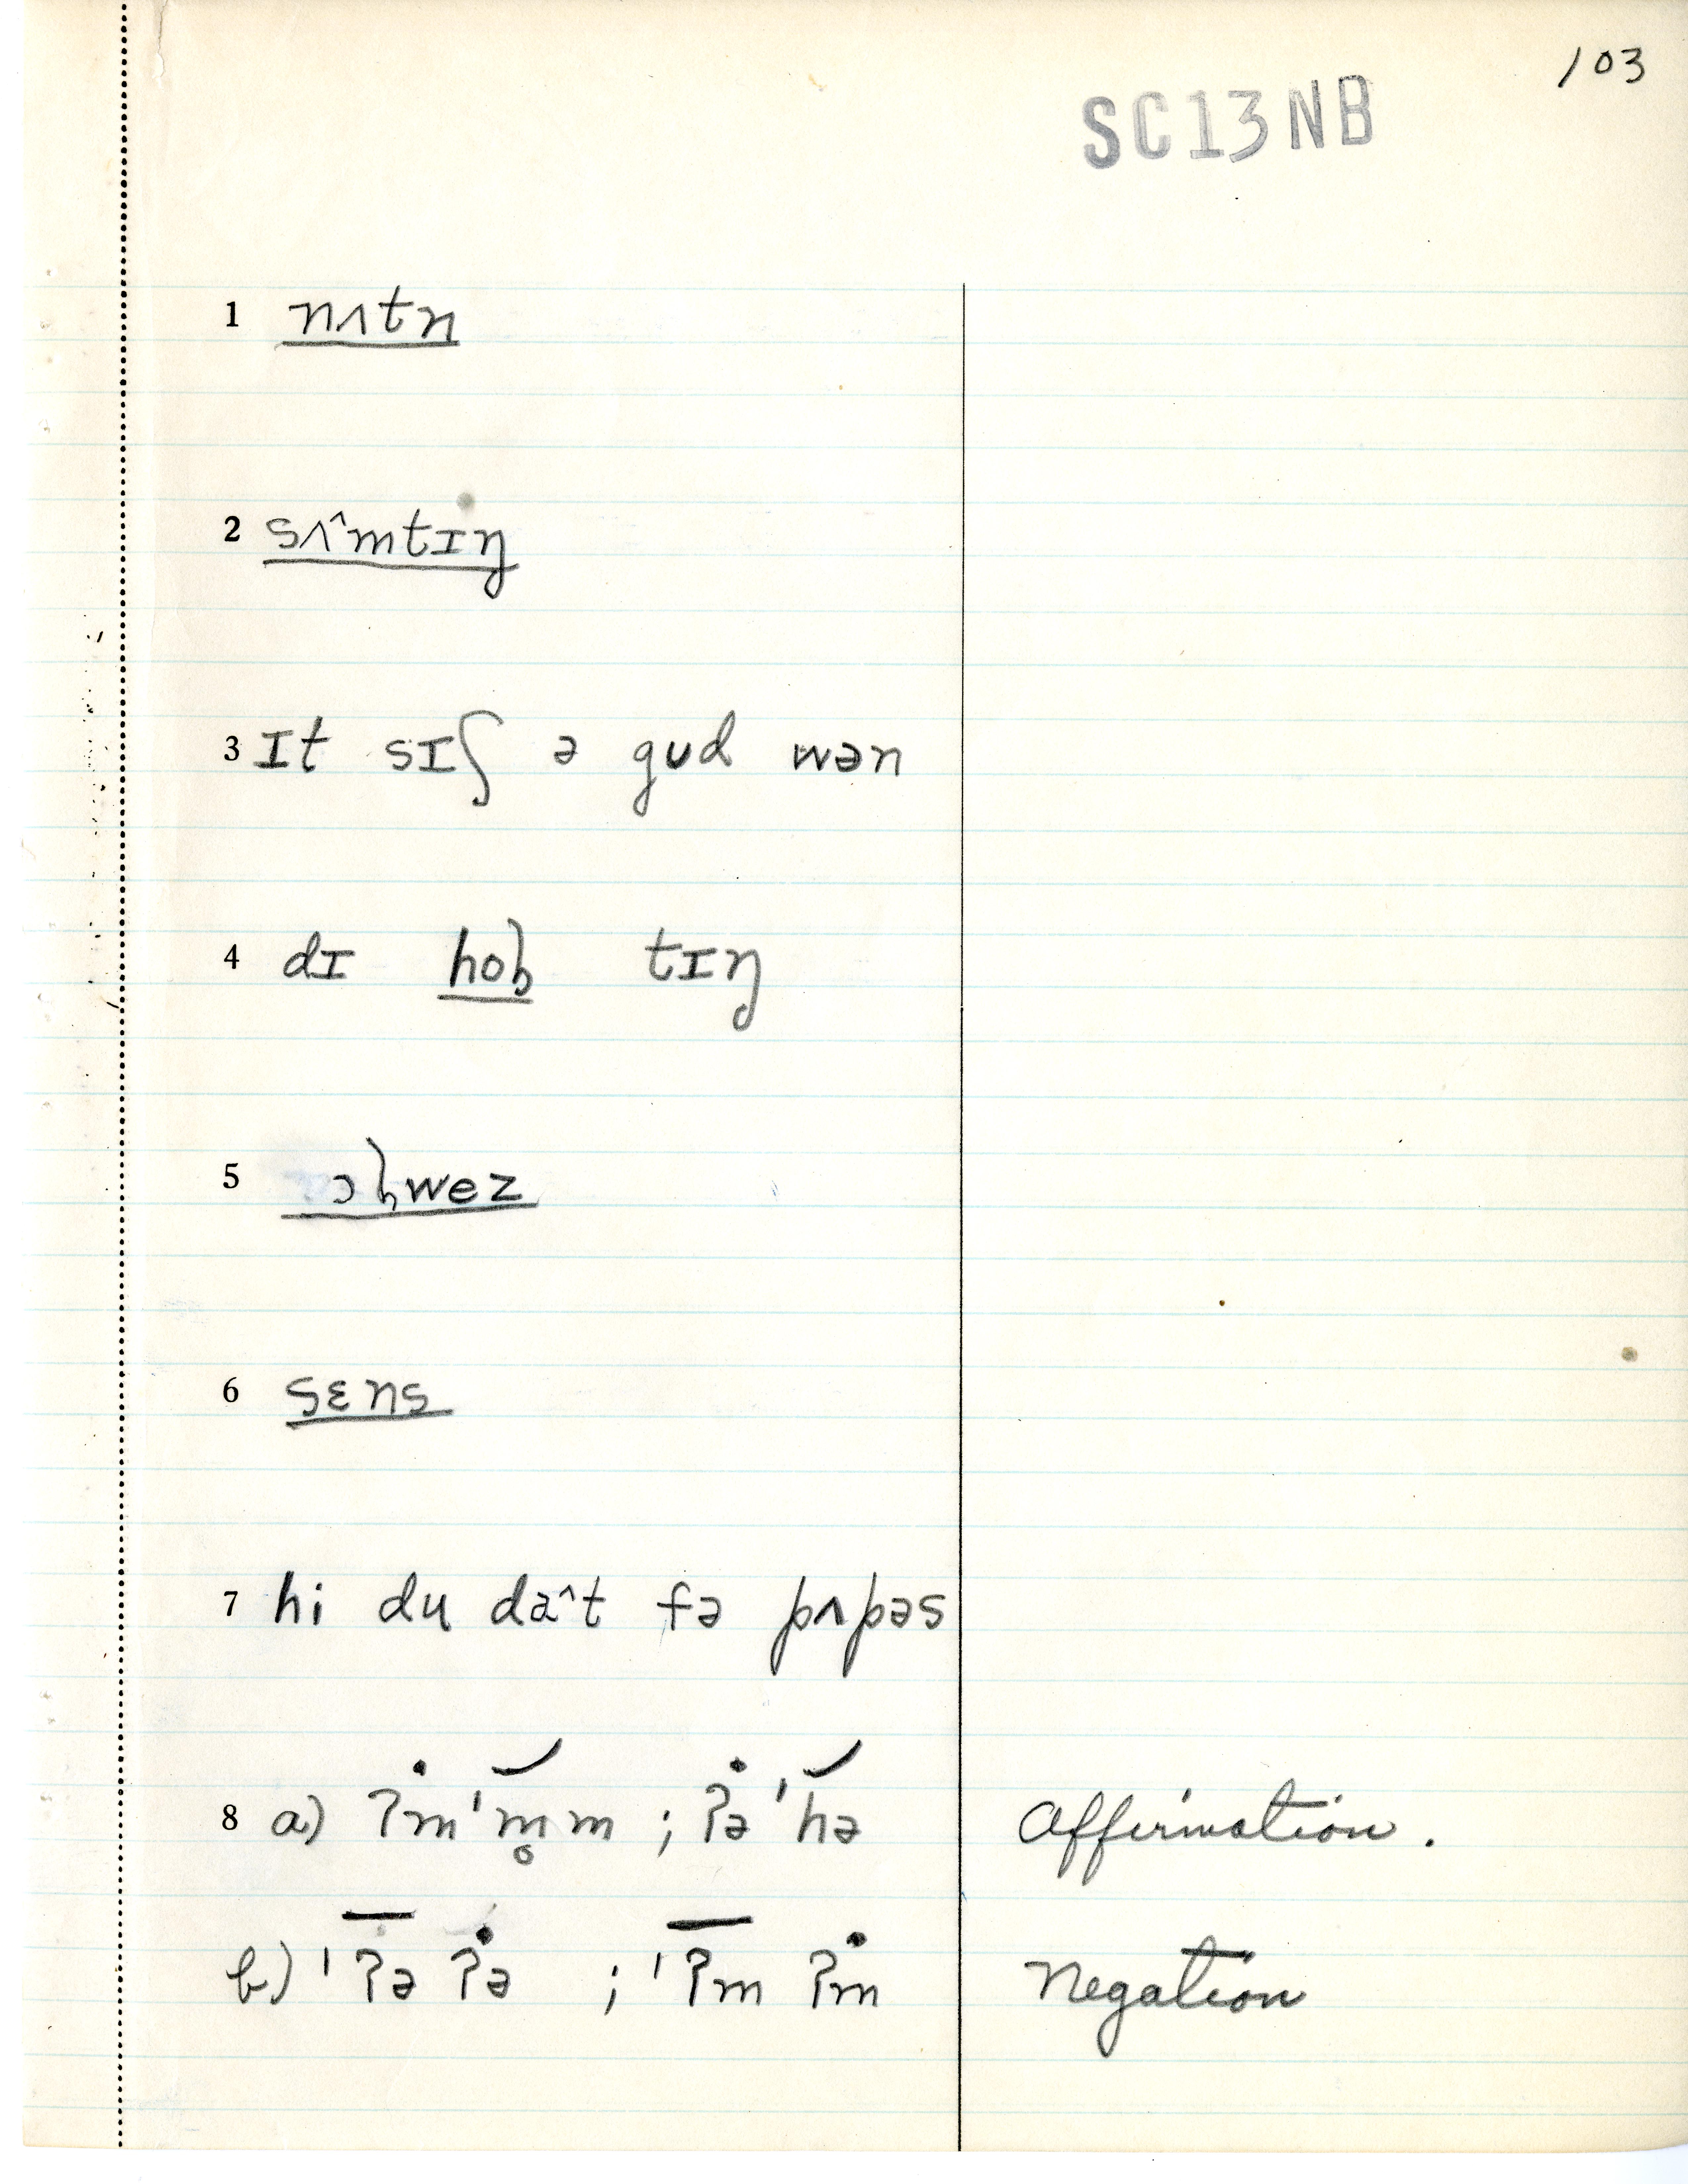 103
SC13NB
1 nʌtn
2 sʌ^mtɪŋ
3 ɪt sɪʃ ə gud wən
4 dɪ hoɫ tɪŋ
5 ɔɫwez
6 sɛns
7 hi du də^t fə pʌpəs
8 a) ʔm̍ 'm̥m ; ʔə 'hə Affirmation .
b) 'ʔə ʔə ; 'ʔm ʔm Negation